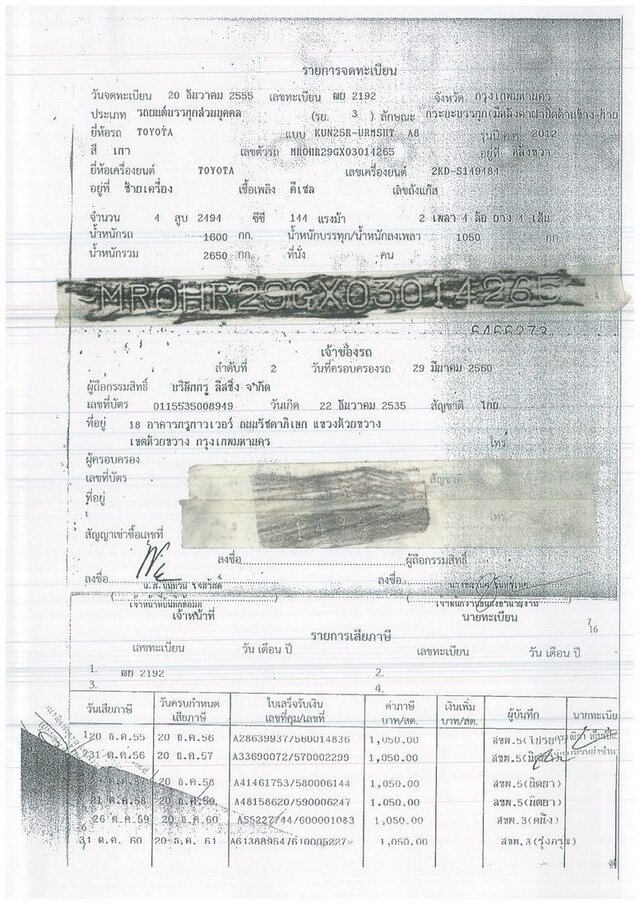 รายการจดทะเบียน
วันจดทะเบียน 20 ธันวาคม 2555 เลขทะเบียน ฒย 2192 จังหวัด กรุงเทพมหานคร
ประเภท รถยนต์บรรทุกส่วนบุคคล (รย. 3 ) ลักษณะ กระบะบรรทุก(มีหลังคาฝาปิดด้านข้าง-ท้าย
ยี่ห้อรถ TOYOTA แบบ KUN25R-URMSHT A8 รุ่นปี ค.ศ. 2012
สี เทา เลขตัวรถ MR0HR29GX03014265 อยู่ที่ หลังขวา
ยี่ห้อเครื่องยนต์ TOYOTA เลขเครื่องยนต์ 2KD-S149484
อยู่ที่ ซ้ายเครื่อง เชื้อเพลิง ดีเซล เลขถังแก๊ส
จำนวน 4 สูบ 2494 ซีซี 144 แรงม้า 2 เพลา 4 ล้อ ยาง 4 เส้น
น้ำหนักรถ 1600 กก. น้ำหนักบรรทุก/น้ำหนักลงเพลา 1050 กก
น้ำหนักรวม 2650 กก. ที่นั่ง คน
MR0HR29GX03014265
6466273
เจ้าของรถ
ลำดับที่ 2 วันที่ครอบครองรถ 29 มีนาคม 2560
ผู้ถือกรรมสิทธิ์ บริษัทกรู ลีสซิ่ง จำกัด
เลขที่บัตร 0115535008949 วันเกิด 22 ธันวาคม 2535 สัญชาติ ไทย
ที่อยู่ 18 อาคารกรูทาวเวอร์ ถนนรัชดาภิเษก แขวงห้วยขวาง
เขตห้วยขวาง กรุงเทพมหานคร โทร
ผู้ครอบครอง
เลขที่บัตร สัญชาติ
ที่อยู่ โทร
สัญญาเช่าซื้อเลขที่
ลงชื่อ ผู้ถือกรรมสิทธิ์
ลงชื่อ ลงชื่อ
เจ้าหน้าที่บันทึกข้อมูล
เจ้าหน้าที่ นายทะเบียน
7/16
รายการเสียภาษี
เลขทะเบียน วัน เดือน ปี เลขทะเบียน วัน เดือน ปี
1. ฒย 2192 2.
3. 4.
วันเสียภาษี วันครบกำหนดเสียภาษี ใบเสร็จรับเงิน เลขที่คุม/เลขที่ ค่าภาษี บาท/สต. เงินเพิ่ม บาท/สต. ผู้บันทึก นายทะเบีย
20 ธ.ค.55 20 ธ.ค.56 A28639937/560014836 1,050.00
31 ต.ค.56 20 ธ.ค.57 A33690072/570002299 1,050.00
20 ธ.ค.58 A41461753/580006144 1,050.00 สขพ.5(นิตยา)
21 ต.ค.58 20 ธ.ค.59 A48158620/590006247 1,050.00 สขพ.5(นิตยา)
26 ต.ค.59 20 ธ.ค.60 1,050.00 สขพ.3(คนึง)
31 ต.ค. 60 20 ธ.ค. 61 1,050.00